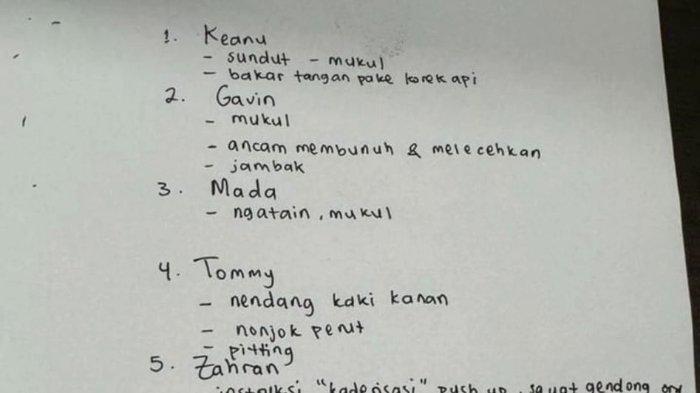 1. Keanu
- sundut - mukul
- bakar tangan pake korek api
2. Gavin
- mukul
- ancam membunuh & melecehkan
- jambak
3. Mada
- ngatain, mukul
4. Tommy
- nendang kaki kanan
- nonjok perut
- pitting
5. Zahran
instruksi "kaderisasi" push up, squat gendong